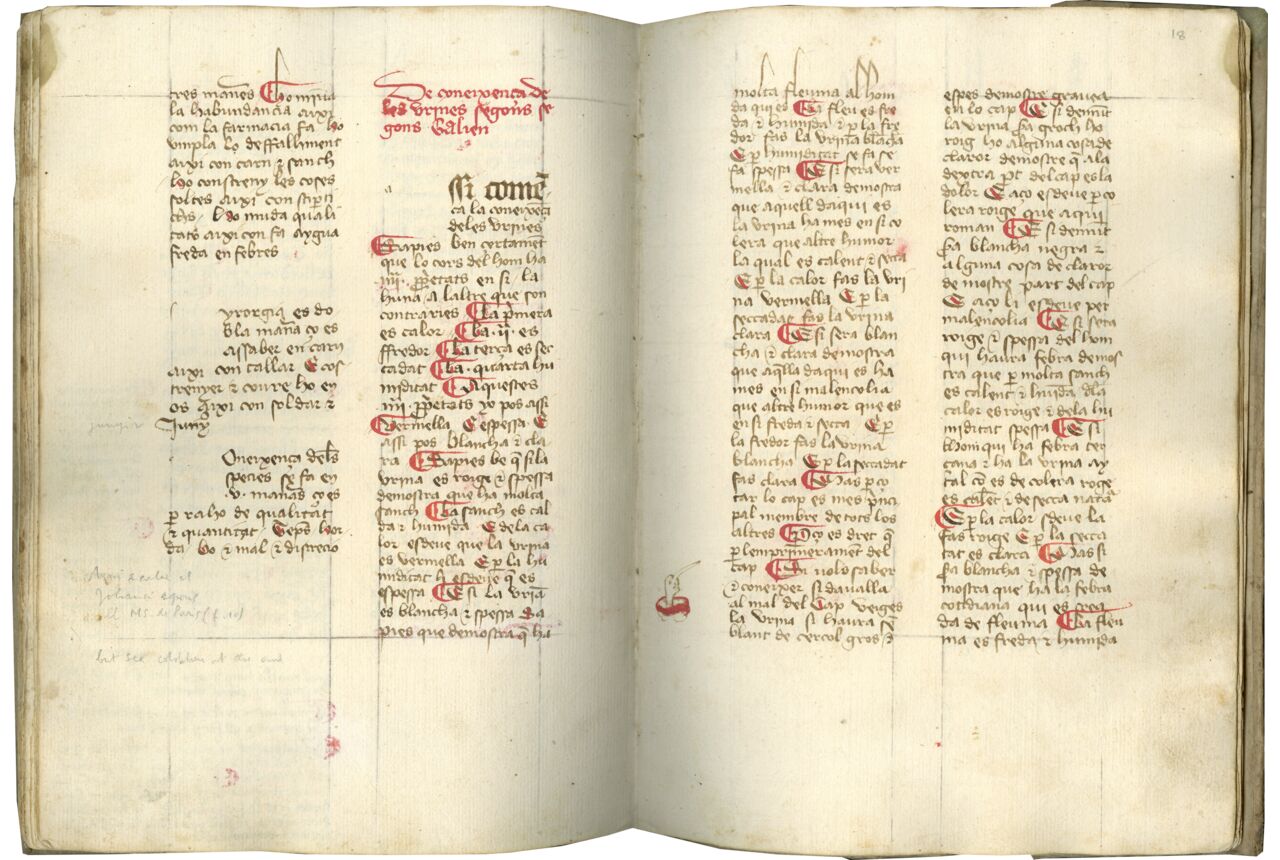 tres maneres Cho minua
la habundancia aixi
com la farmacia fa ho
vmpla lo deffalliment
aixi con carn ⁊ sanch
lho constreny les coses
soltes aixi con stipti
chs. lho muda quali
tats aixi con fa aygua
freda en febres
yrorgia es do
bla maña ço es
assaber en carn
aixi con tallar E cos
trenyer ⁊ coure ho en
os aixi con soldar ⁊
Juny
Oneixença dels
species se fa en
v. mañas ço es
per raho de qualitat
⁊ quantitat Temps hor
da bo ⁊ mal ⁊ discrecio
De coneixença de
les vrines segons se
gons Galien
a
ssi comẽ
ca la coneixeça
de les vrines
Sapies ben certament
que lo cors del hom ha
iiii. propetats en si la
huna a laltre que son
contraries La primera
es calor La .ii. es
ffredor La terça es sec
cadat La . quarta hu
miditat Aquestes
iiii. propetats yo pos assi
Vermella E espessa E
assi pos blancha ⁊ cla
ra Sapies be q̃ si la
vrina es roige ⁊ spessa
demostra que ha molta
sanch La sanch es cal
da ⁊ humida E de la ca
lor esdeue que la vrina
es vermella E p la hu
miditat li esdeue q̃ es
espessa E si la vrina
es blancha ⁊ spessa Sa
pies que demostra q̃ ha
18
molta fleuma al hom
da qui es La fleu es fre
da ⁊ humida ⁊ p la fre
dor fas la vrina blacha
E p humiditat se fa se
fa spessa E si sera ver
mella ⁊ clara demostra
que aquell daqui es
la vrina ha mes en si co
lera que altre humor
la qual es calent ⁊ secca
E p la calor fas la vri
na vermella E p la
seccadat fas la vrina
clara E si sera blan
cha ⁊ clara demostra
que aq̃lla daqui es ha
mes en si malencolia
que altre humor que es
en si freda ⁊ secca E p
la fredor fas la vrina
blancha E p la seccadat
fas clara Mas p co
tar lo cap es mes princi
pal membre de tots los
altres Don ço es dret q̃
p lemprimerament del
cap E si vols saber
⁊ coneixer si daualla
al mal del Cap veiges
la vrina si haura se
blant de cercol gros ⁊
espes demostre grauea
en lo cap E si demunt
la vrina fa groch ho
roig ho alguna cosa de
claror demostre q̃ a la
dextra pt del cap es la
dolor E aço esdeue p co
lera roige que aqui
roman E si demunt
fa blancha negra ⁊
alguna cosa de claror
demostre part del cap
E aço li esdeue per
malencolia E si sera
roige ⁊ spessa del hom
qui haura febra demos
tra que p molta sanch
es calent ⁊ humida dla
calor es roige ⁊ de la hu
miditat spessa E si
lhom qui ha febra ter
çana ⁊ ha la vrina ay
tal ço es de colera roge
es calent ⁊ de secca natura
E p la calor sdeue la
fas roige E p la secca
tat es clara Mas si
fa blancha ⁊ spessa de
mostra que ha la febra
cotidiana qui es crea
da de fleuma La fleu
ma es freda ⁊ humida